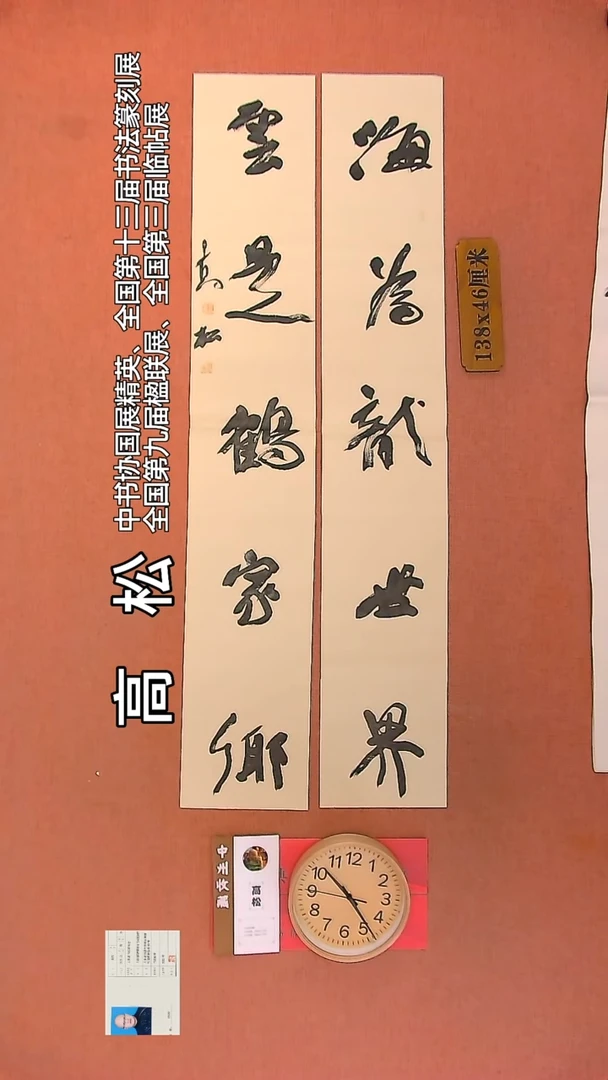 海为龍世界
雲是鶴家鄉
高松
138x46厘米
高 松
中书协国展精英、全国第十三届书法篆刻展
全国第九届楹联展、全国第三届临帖展
高松
12
1
2
3
4
5
6
7
8
9
10
11